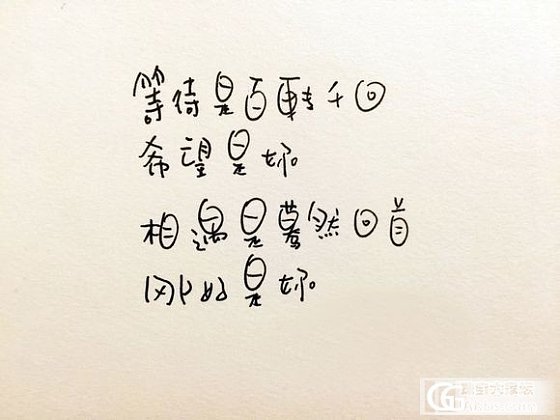 等待是百轉千回
希望是妳。
相遇是驀然回首
刚好是妳。